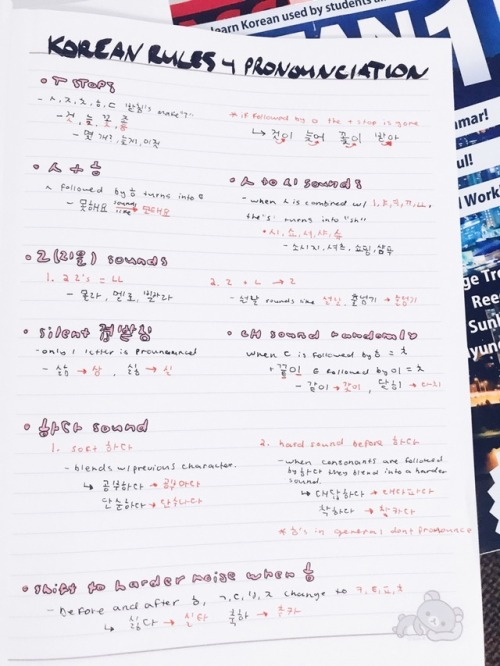 KOREAN RULES + PRONOUNCIATION
learn Korean used by students
1
mar!
ul!
d Work
ge Tr
Ree
Sun
yun
• T STOPS
* if followed by ㅇ the t stop is gone
것이 늦어 꽃이
몇 개?, 늦게, 이것
• ㅅ + ㅎ
ㅅ followed by ㅎ turns into ㅌ
- 못해요 sounds like 모태요
• ㅅ to si sounds
- when ㅅ is combined w/
the 's' turns into "sh"
• 시, 쇼, 셔, 샤, 슈
- 소시지, 셔츠, 쇼핑, 샴푸
• ㄹ(리을) sounds
1. 2 ㄹ's = LL
2. ㄹ + ㄴ → ㄹ
- 몰라, 멜로, 빌라라
- 설날 sounds like 설랄, 줄넘기 → 줄럼기
• silent 겹받침
- only 1 letter is pronounced
- 삶 → 삼, 싫 → 실
• CH sound randomly
when ㄷ is followed by ㅎ = ㅊ
+ 끝이 ㅌ followed by 이 = ㅊ
- 같이 → 가치, 닫히 → 다치
• 하다 sound
1. soft 하다
- blends w/previous character.
↳ 공부하다 → 공부아다
단순하다 → 단수나다
2. hard sound before 하다
- when consonants are followed
by 하다 they blend into a harder
sound.
↳ 대답하다 → 대다파다
착하다 → 차카다
* ㅎ's in general dont pronounce
• shift to harder noise when ㅎ
- Before and after ㅎ, ㄱ, ㄷ, ㅂ, ㅈ change to ㅋ, ㅌ, ㅍ, ㅊ
↳ 싫다 → 실타 축하 → 추카